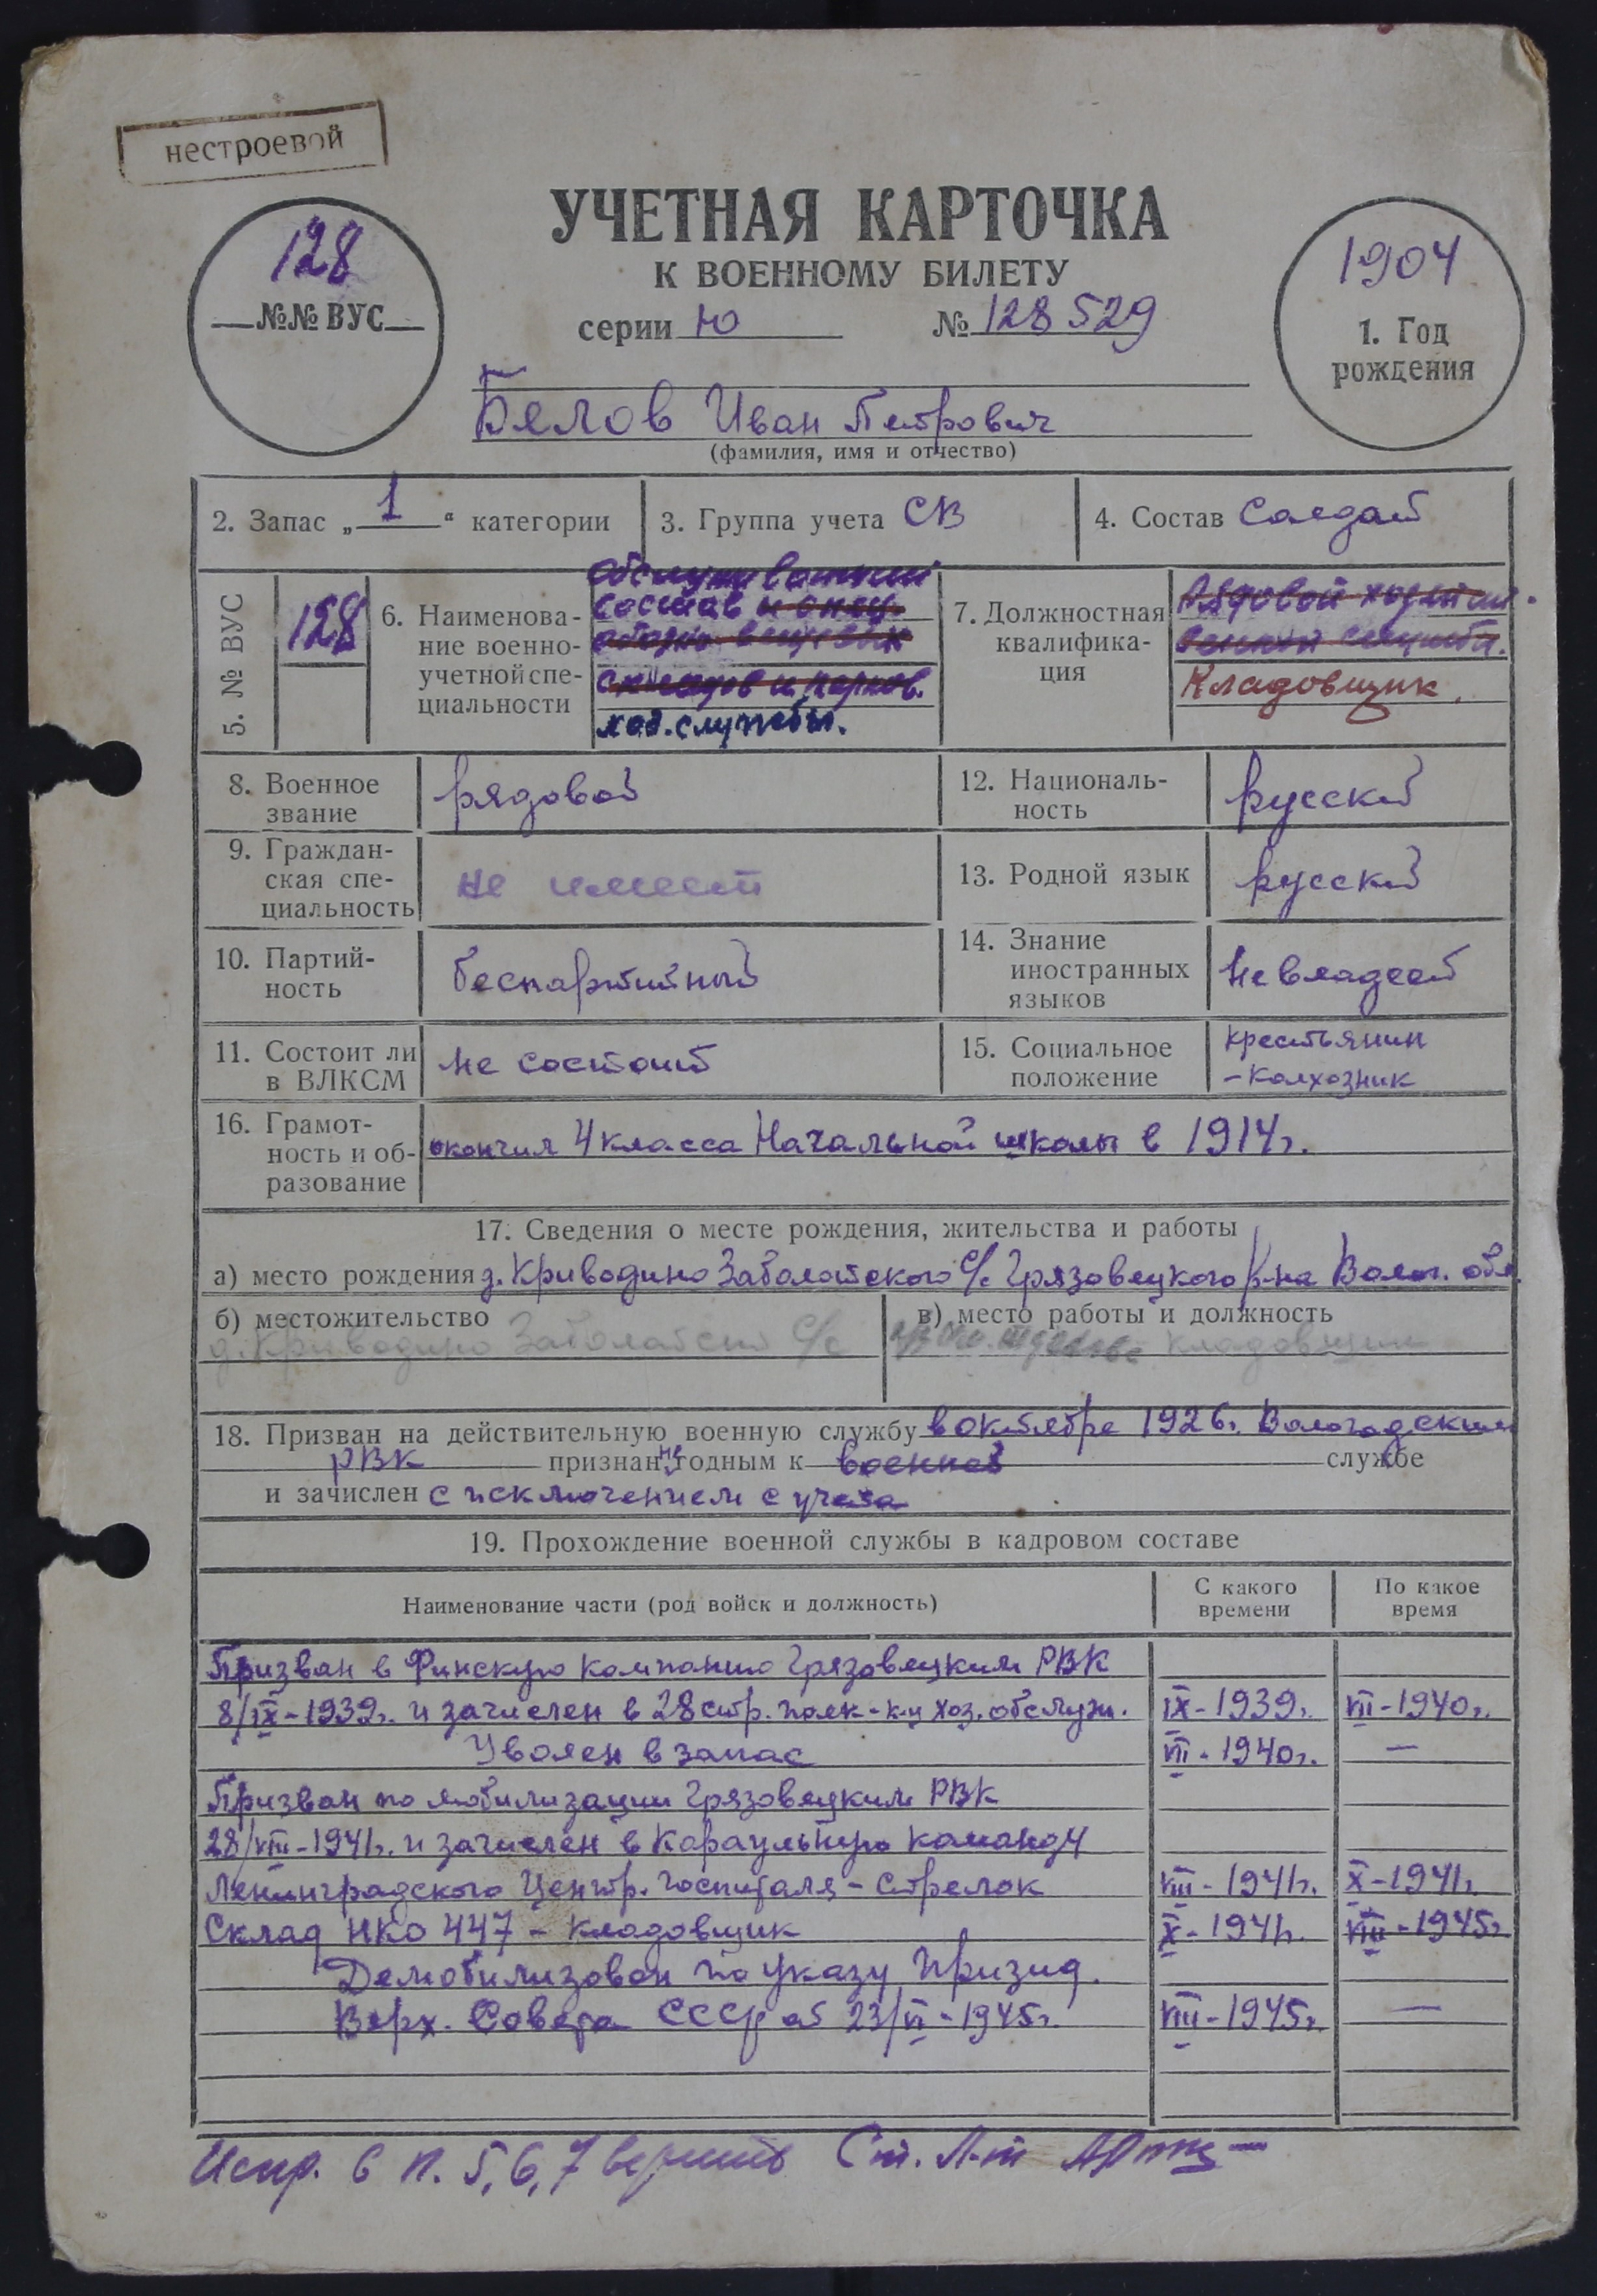 нестроевой
128
№№ ВУС
УЧЕТНАЯ КАРТОЧКА
К ВОЕННОМУ БИЛЕТУ
серии Ю № 128529
1904
1. Год
рождения
Белов Иван Петрович
(фамилия, имя и отчество)
2. Запас „1“ категории
3. Группа учета СВ
4. Состав Солдат
5. № ВУС
128
6. Наименова-
ние военно-
учетной спе-
циальности
обслуживающий
состав и спец.
складов и парков.
хоз. службы.
7. Должностная
квалифика-
ция
Рядовой хозяйст-
венной службы.
Кладовщик.
8. Военное
звание
рядовой
12. Националь-
ность
русский
9. Граждан-
ская спе-
циальность
не имеет
13. Родной язык
русский
10. Партий-
ность
беспартийный
14. Знание
иностранных
языков
не владеет
11. Состоит ли
в ВЛКСМ
не состоит
15. Социальное
положение
крестьянин
-колхозник
16. Грамот-
ность и об-
разование
окончил 4 класса Начальной школы в 1914г.
17. Сведения о месте рождения, жительства и работы
а) место рождения д. Криводино Заболотского с/с Грязовецкого р-на Волог. обл.
б) местожительство
д. Криводино Заболотский с/с
в) место работы и должность
кладовщик
18. Призван на действительную военную службу в октябре 1926г. Вологодским
РВК признан не годным к военной службе
и зачислен с исключением с учета
19. Прохождение военной службы в кадровом составе
Наименование части (род войск и должность)
С какого
времени
По какое
время
Призван в Финскую компанию Грязовецким РВК
8/IX-1939г. и зачислен в 28 стр. полк - к-ц хоз. обслуж. IX-1939г. VII-1940г.
Уволен в запас VII-1940г. —
Призван по мобилизации Грязовецким РВК
28/VIII-1941г. и зачислен в Караульную команду
Ленинградского Центр. госпиталя - стрелок VIII-1941г. X-1941г.
Склад НКО 447 - кладовщик X-1941г. VIII-1945г.
Демобилизован по указу Призид.
Верх. Совета СССР от 23/VI-1945г. VIII-1945г. —
Испр. в п. 5, 6, 7 верить Ст. Л-т